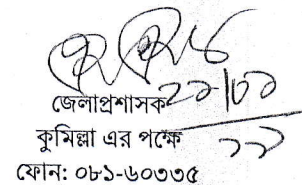 জেলাপ্রশাসক
কুমিল্লা এর পক্ষে
ফোন: ০৮১-৬০৩৩৫